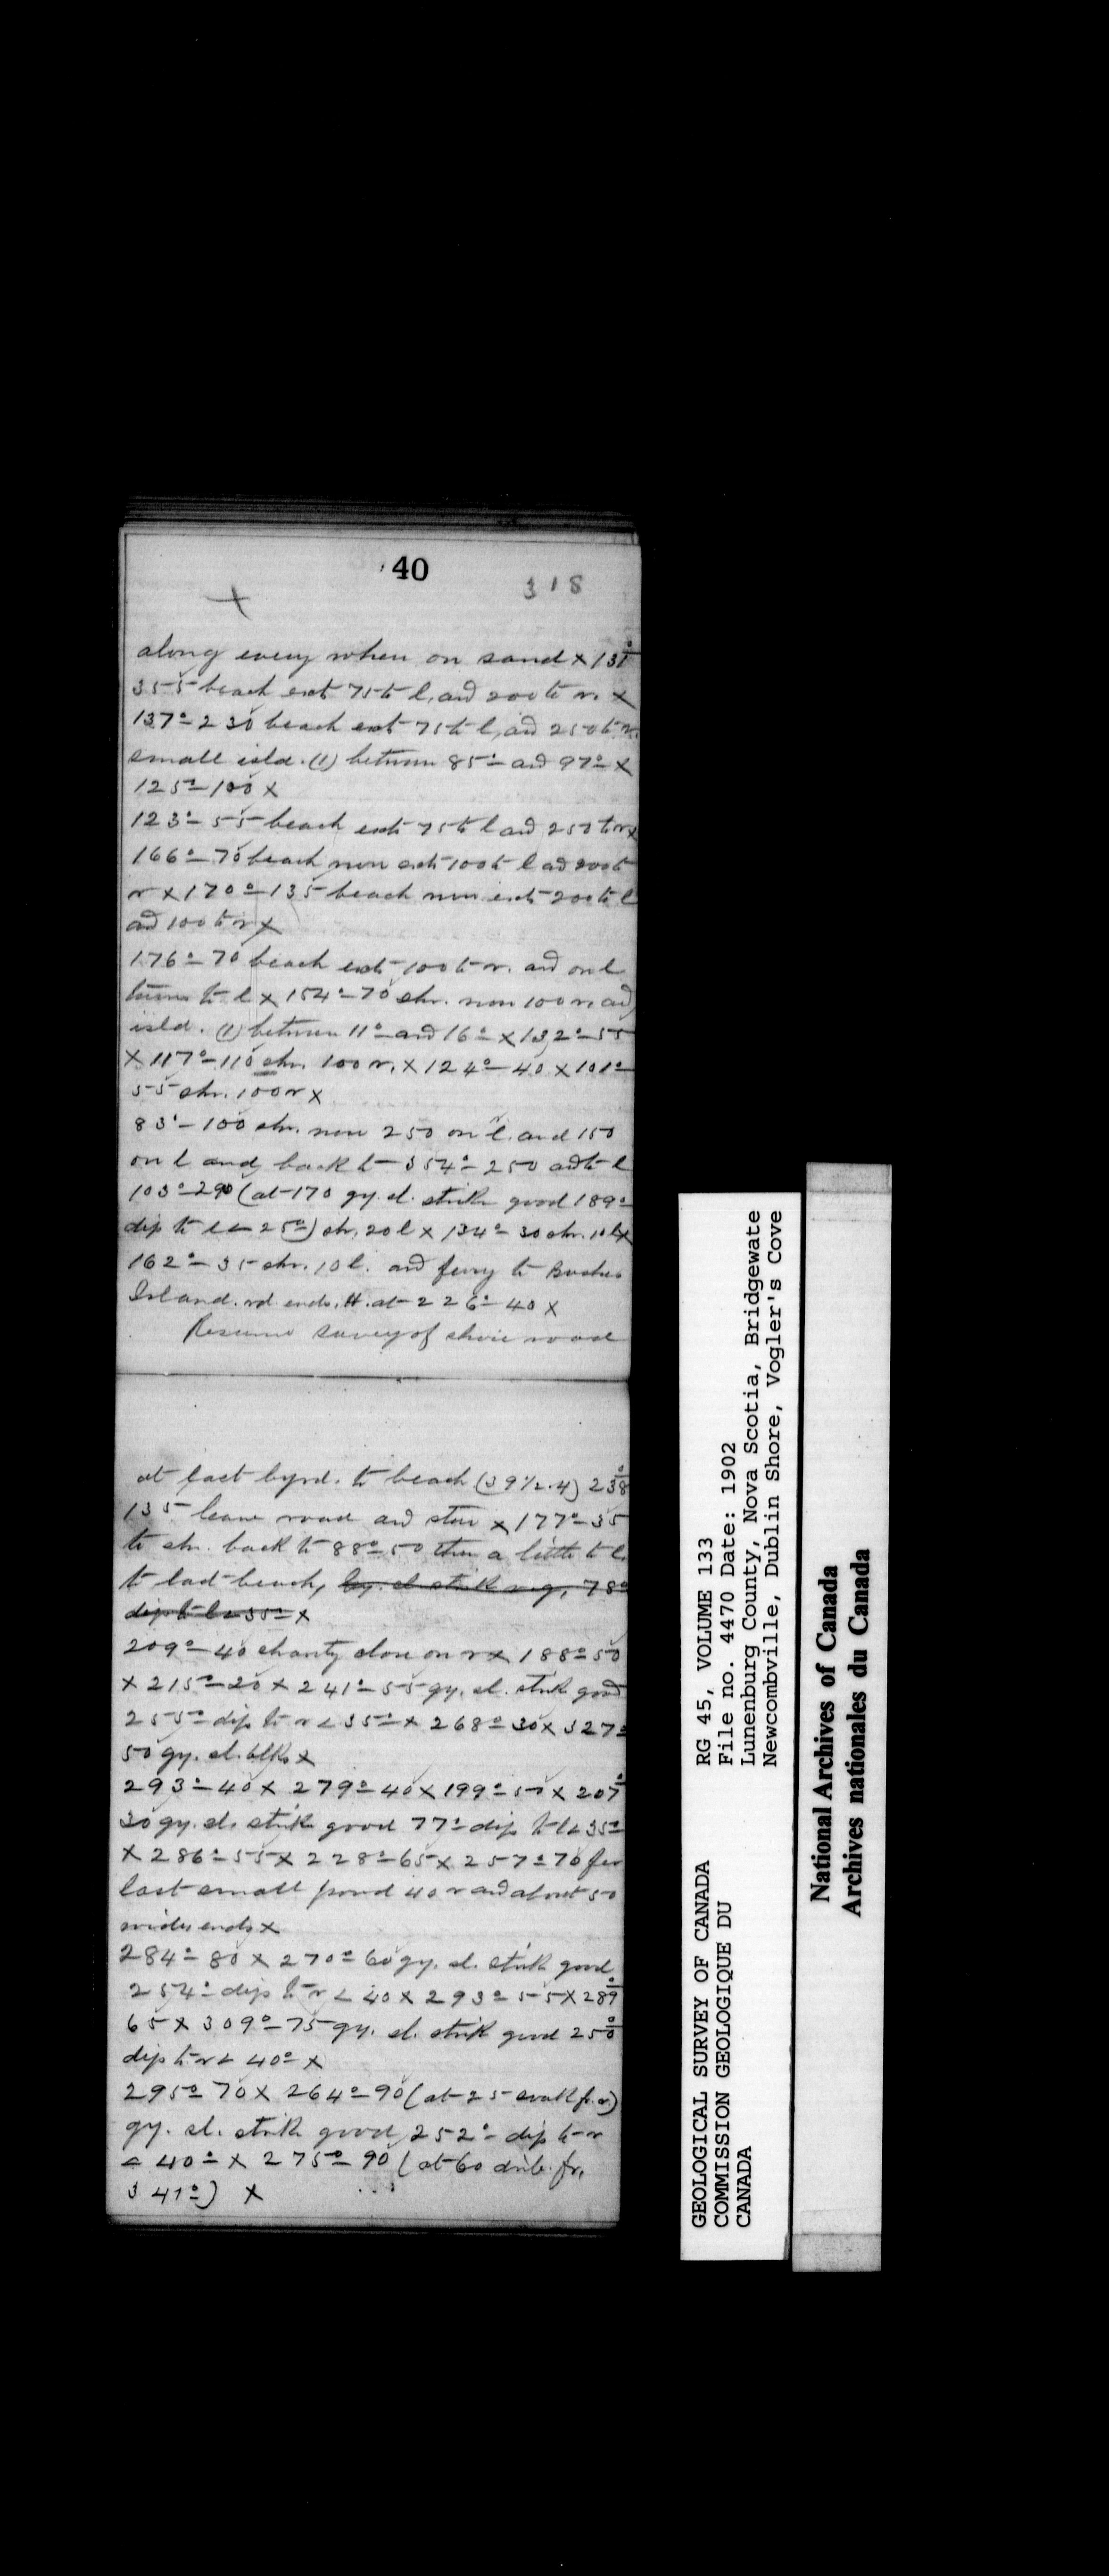 40
318
along every when on sand x 131°
355 beach ext 75 to l, and 200 to r. x
137° - 230 beach ext 75 to l, ad 250 to r.
small isld. (1) between 85° and 97° x
125° - 100 x
123° - 55 beach exts 75 to l and 250 to r x
166° - 70 beach now exts 100 to l ad 200 to
r x 170° - 135 beach now exts 200 to l
ad 100 to r x
176° - 70 beach exts 100 to r. and on l
turns to l x 154° - 70 shr. now 100 r. and
isld. (1) between 11° and 16° x 132° - 55
x 117° - 110 shr. 100 r. x 124° - 40 x 101°
55 shr. 100 r x
83° - 100 shr. now 250 on r. and 150
on l and back to 354° - 250 ad to l
103° - 290 (at 170 gy. sl. strike good 189°
dip to l < 25°) shr. 20 l x 134° - 30 shr. 10 l x
162° - 35 shr. 10 l. and ferry to Bushes
Island. rd ends. H. at 226° - 40 x
Resume survey of shore road
at last byrd. to beach (39 1/2.4) 238°
135 leave road and stru x 177° - 35
to shr. back to 88° - 50 then a little to l.
to last beach, gy. sl strike n.g. 78°
dip to l < 35° x
209° - 40 shanty close on r x 188° 50
x 215° - 20 x 241° - 55 gy. sl. strike good
255° dip to r < 35° x 268° 30 x 327°
50 gy. sl. blks x
293° - 40 x 279° - 40 x 199° - 50 x 207°
30 gy. sl. strike good 77° dip to l < 35°
x 286° - 55 x 228° - 65 x 257° 70 for
last small pond 40 r and about 50
wide ends x
284° - 80 x 270° 60 gy. sl. strike good
254° dip to r < 40 x 293° - 55 x 289°
65 x 309° - 75 gy. sl. strike good 250°
dip to r < 40° x
295° 70 x 264° - 90 (at 25 small fr. r)
gy. sl. strike good, 252° dip to r
< 40° x 275° - 90 (at 60 fr.
341°) x
GEOLOGICAL SURVEY OF CANADA
COMMISSION GEOLOGIQUE DU
CANADA
RG 45, VOLUME 133
File no. 4470 Date: 1902
Lunenburg County, Nova Scotia, Bridgewate
Newcombville, Dublin Shore, Vogler's Cove
National Archives of Canada
Archives nationales du Canada